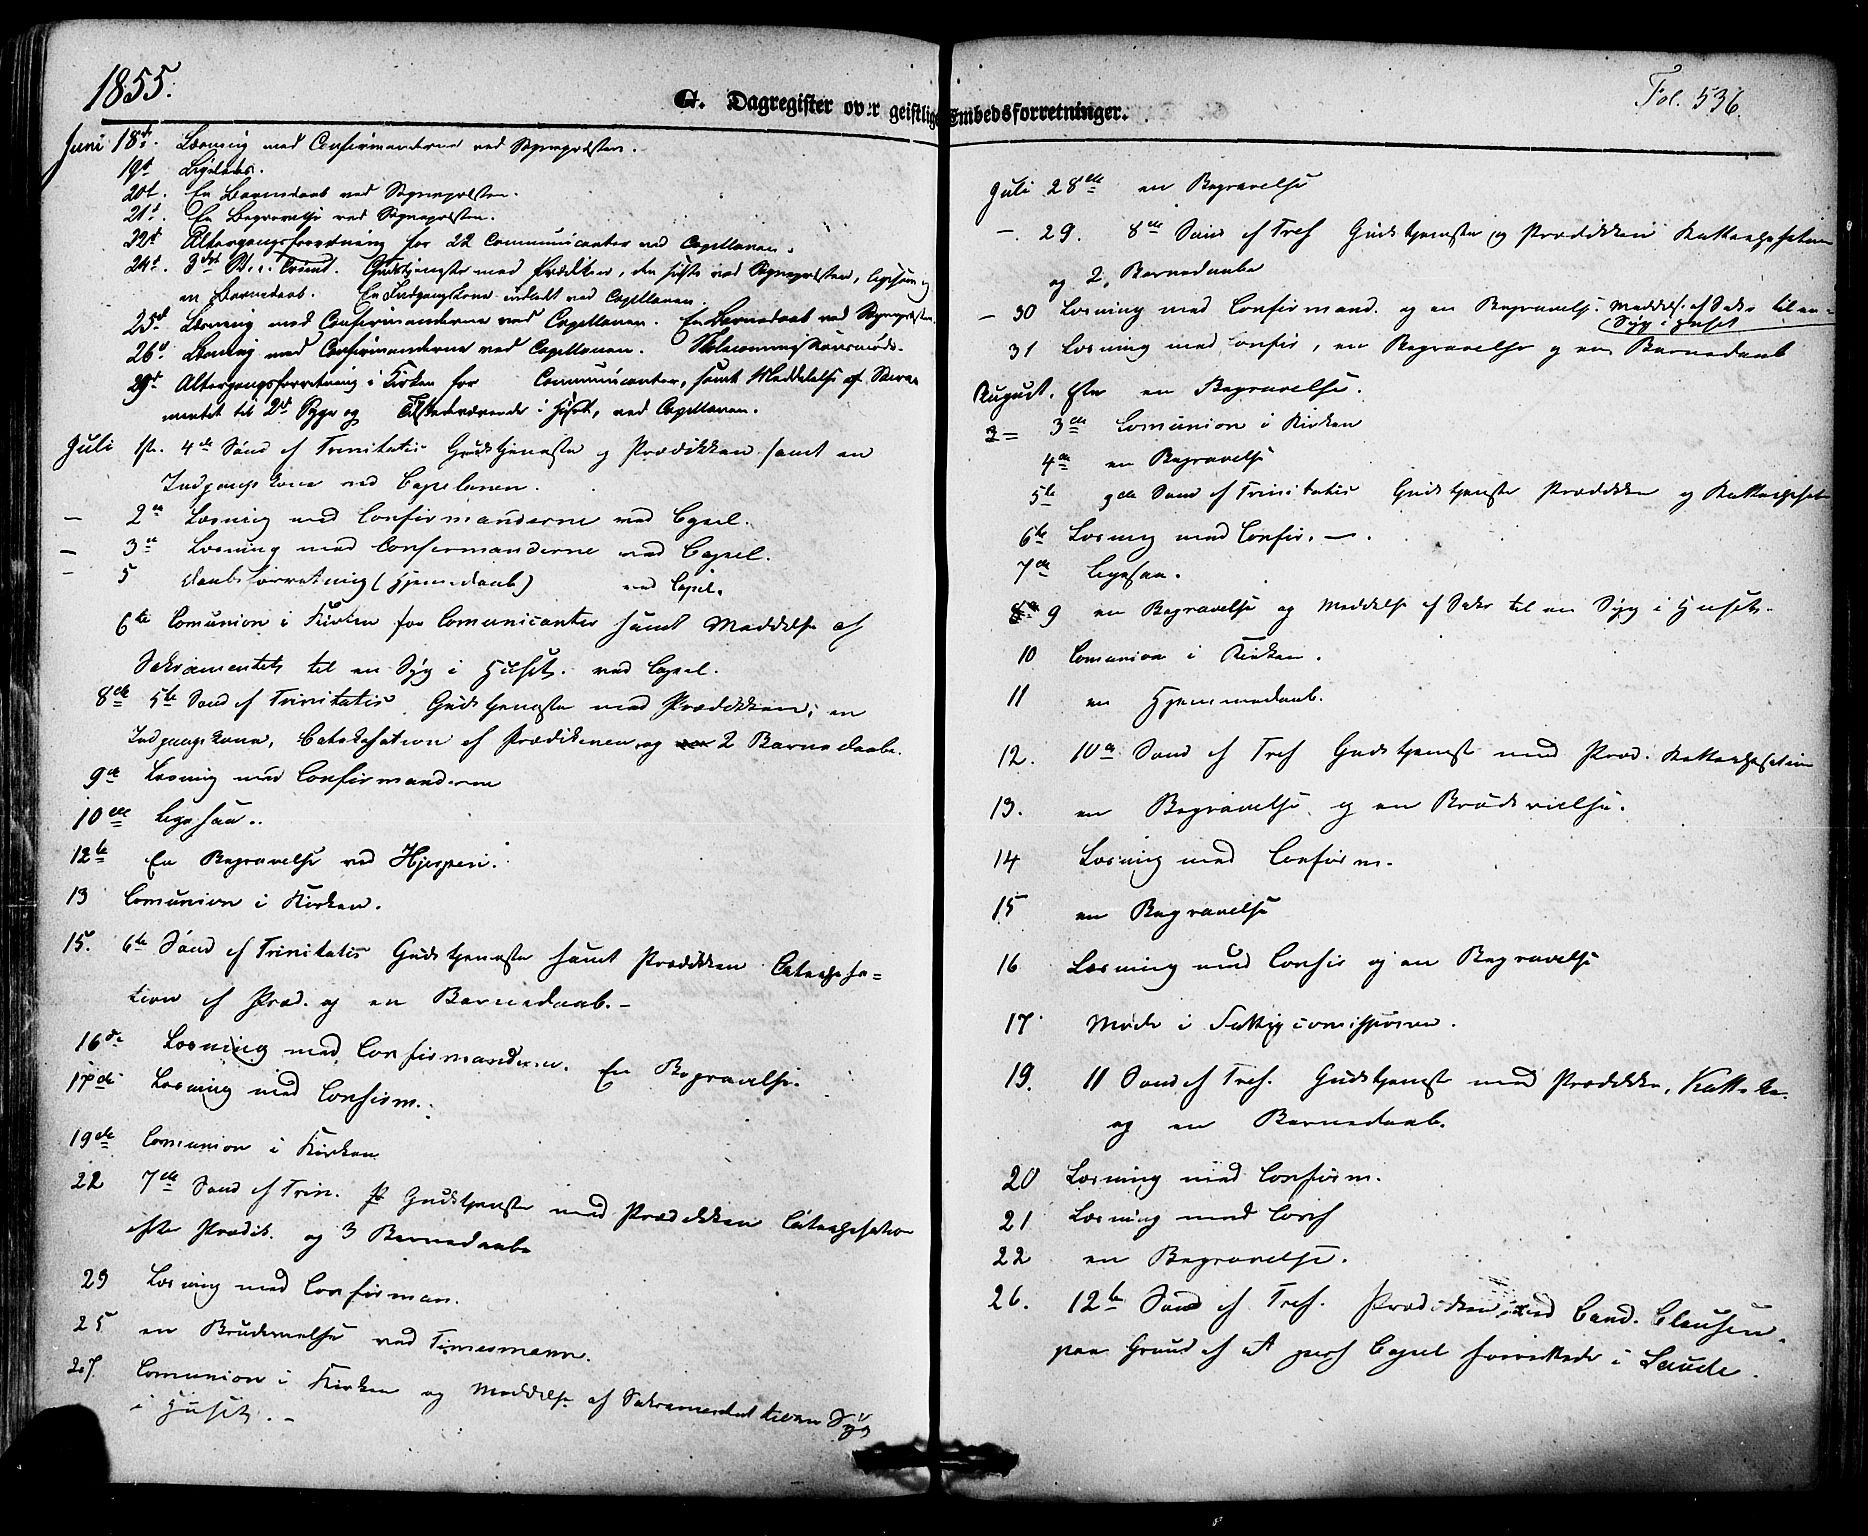 1855.
G. Dagregister over geistlige Embedsforretninger.
Fol. 536
Juni 18de. Læsning med Confirmanderne ved Sognepræsten.
19d Ligeledes.
20d. En Barnedaab ved Sognepræsten.
21d. En Begravelse ved Sognepræsten.
22d Altergangsforretning for 22 Communicanter ved Capellanen.
24d. 3die S. e. Trinit. Gudstjeneste med Prædiken, den sidste ved Sognepræsten, ligesom og
en Barnedaab. En Indgangskone indledt ved Capellanen.
25d Læsning med Confirmanderne ved Capellanen. En Barnedaab ved Sognepræsten.
26d Læsning med Confirmanderne ved Capellanen. Skolecommissionsmøde.
29d Altergangsforretning i Kirken for Communicanter, samt Meddelelse af Sacra-
mentet til 2de Syge og Tilstedeværende i Huset, ved Capellanen.
Juli 1st. 4de Sønd ef Trinitatis Gudstjeneste og Prædikken samt en
Indgangskone ved Capelanen.
- 2en Læsning med Confirmanderne ved Capel.
- 3e Læsning med Confermanderne ved Capel.
- 5 daabsforretning (Hjemedaab) ved Capel.
6te Comunion i Kirken for Comunicanter samt Meddelse af
Sakramentets til en Syg i Huset. ved Capel.
8de 5te Sønd ef Trinitatis. Gudstjeneste med Prædikken; en
Indgangskone, Catekesation ef Prædikenen og 2 Barnedaabe.
9de Læsning med Confirmanderne
10de Ligesaa..
12te En Begravelse ved Hjerperi.
13 Comunion i Kirken.
15. 6te Sønd ef Trinitatis Gudstjeneste samt Prædikken Catechesa=
tion ef Præd. og en Barnedaab.-
16de Læsning med Confirmanderne. En Begravelse.
17de Læsning med Confirm.
19de Comunion i Kirken
22 7de Sønd ef Trin. Gudstjeneste med Prædikken Catechesation
efter Prædik. og 3 Barnedaabe
23 Læsning med Confirman.
25 en Brudevielse ved Timesmann.
27. Comunion i Kirken og Meddelse af Sakramentet til en Syg
i Huset. -
Juli 28de en Begravelse
-. 29. 8de Sønd ef Tref Gudstjeneste og Prædikken Kattechesation
og 2 Barnedaabe
- 30 Læsning med Confirmand. og en Begravelse. Meddelse af Sakr til en
Syg i Huset
31 Læsning med Confir, en Begravelse og en Barnedaab
August. 1ste en Begravelse.
3de Comunion i Kirken
4de en Begravelse
5te 9de Sønd ef Trinitatis Gudstjeneste Prædikken og Kattechesat
6te Læsning med Confir. -.
7de Ligesaa.
9 en Begravelse og Meddelse af Sakr til en Syg i Huset.
10 Comunion i Kirken.
11 en Hjemmedaab.
12. 10de Sønd ef Tref Gudstjenest med Præd. Kattechesation
13. en Begravelse og en Brudevielse.
14 Læsning med Confirm.
15 en Begravelse
16 Læsning med Confir og en Begravelse
17 Møde i Fattigcomissionen.
19. 11 Sønd ef Tref. Gudstjenest med Prædikke, Katteke.
og en Barnedaab.
20 Læsning med Confirm.
21 Læsning med Conf
22 en Begravelse.
26. 12te Sønd ef Tref. Prædikken ved Cand. Clausen.
paa Grund af at pers Capel forrettede i Saude.